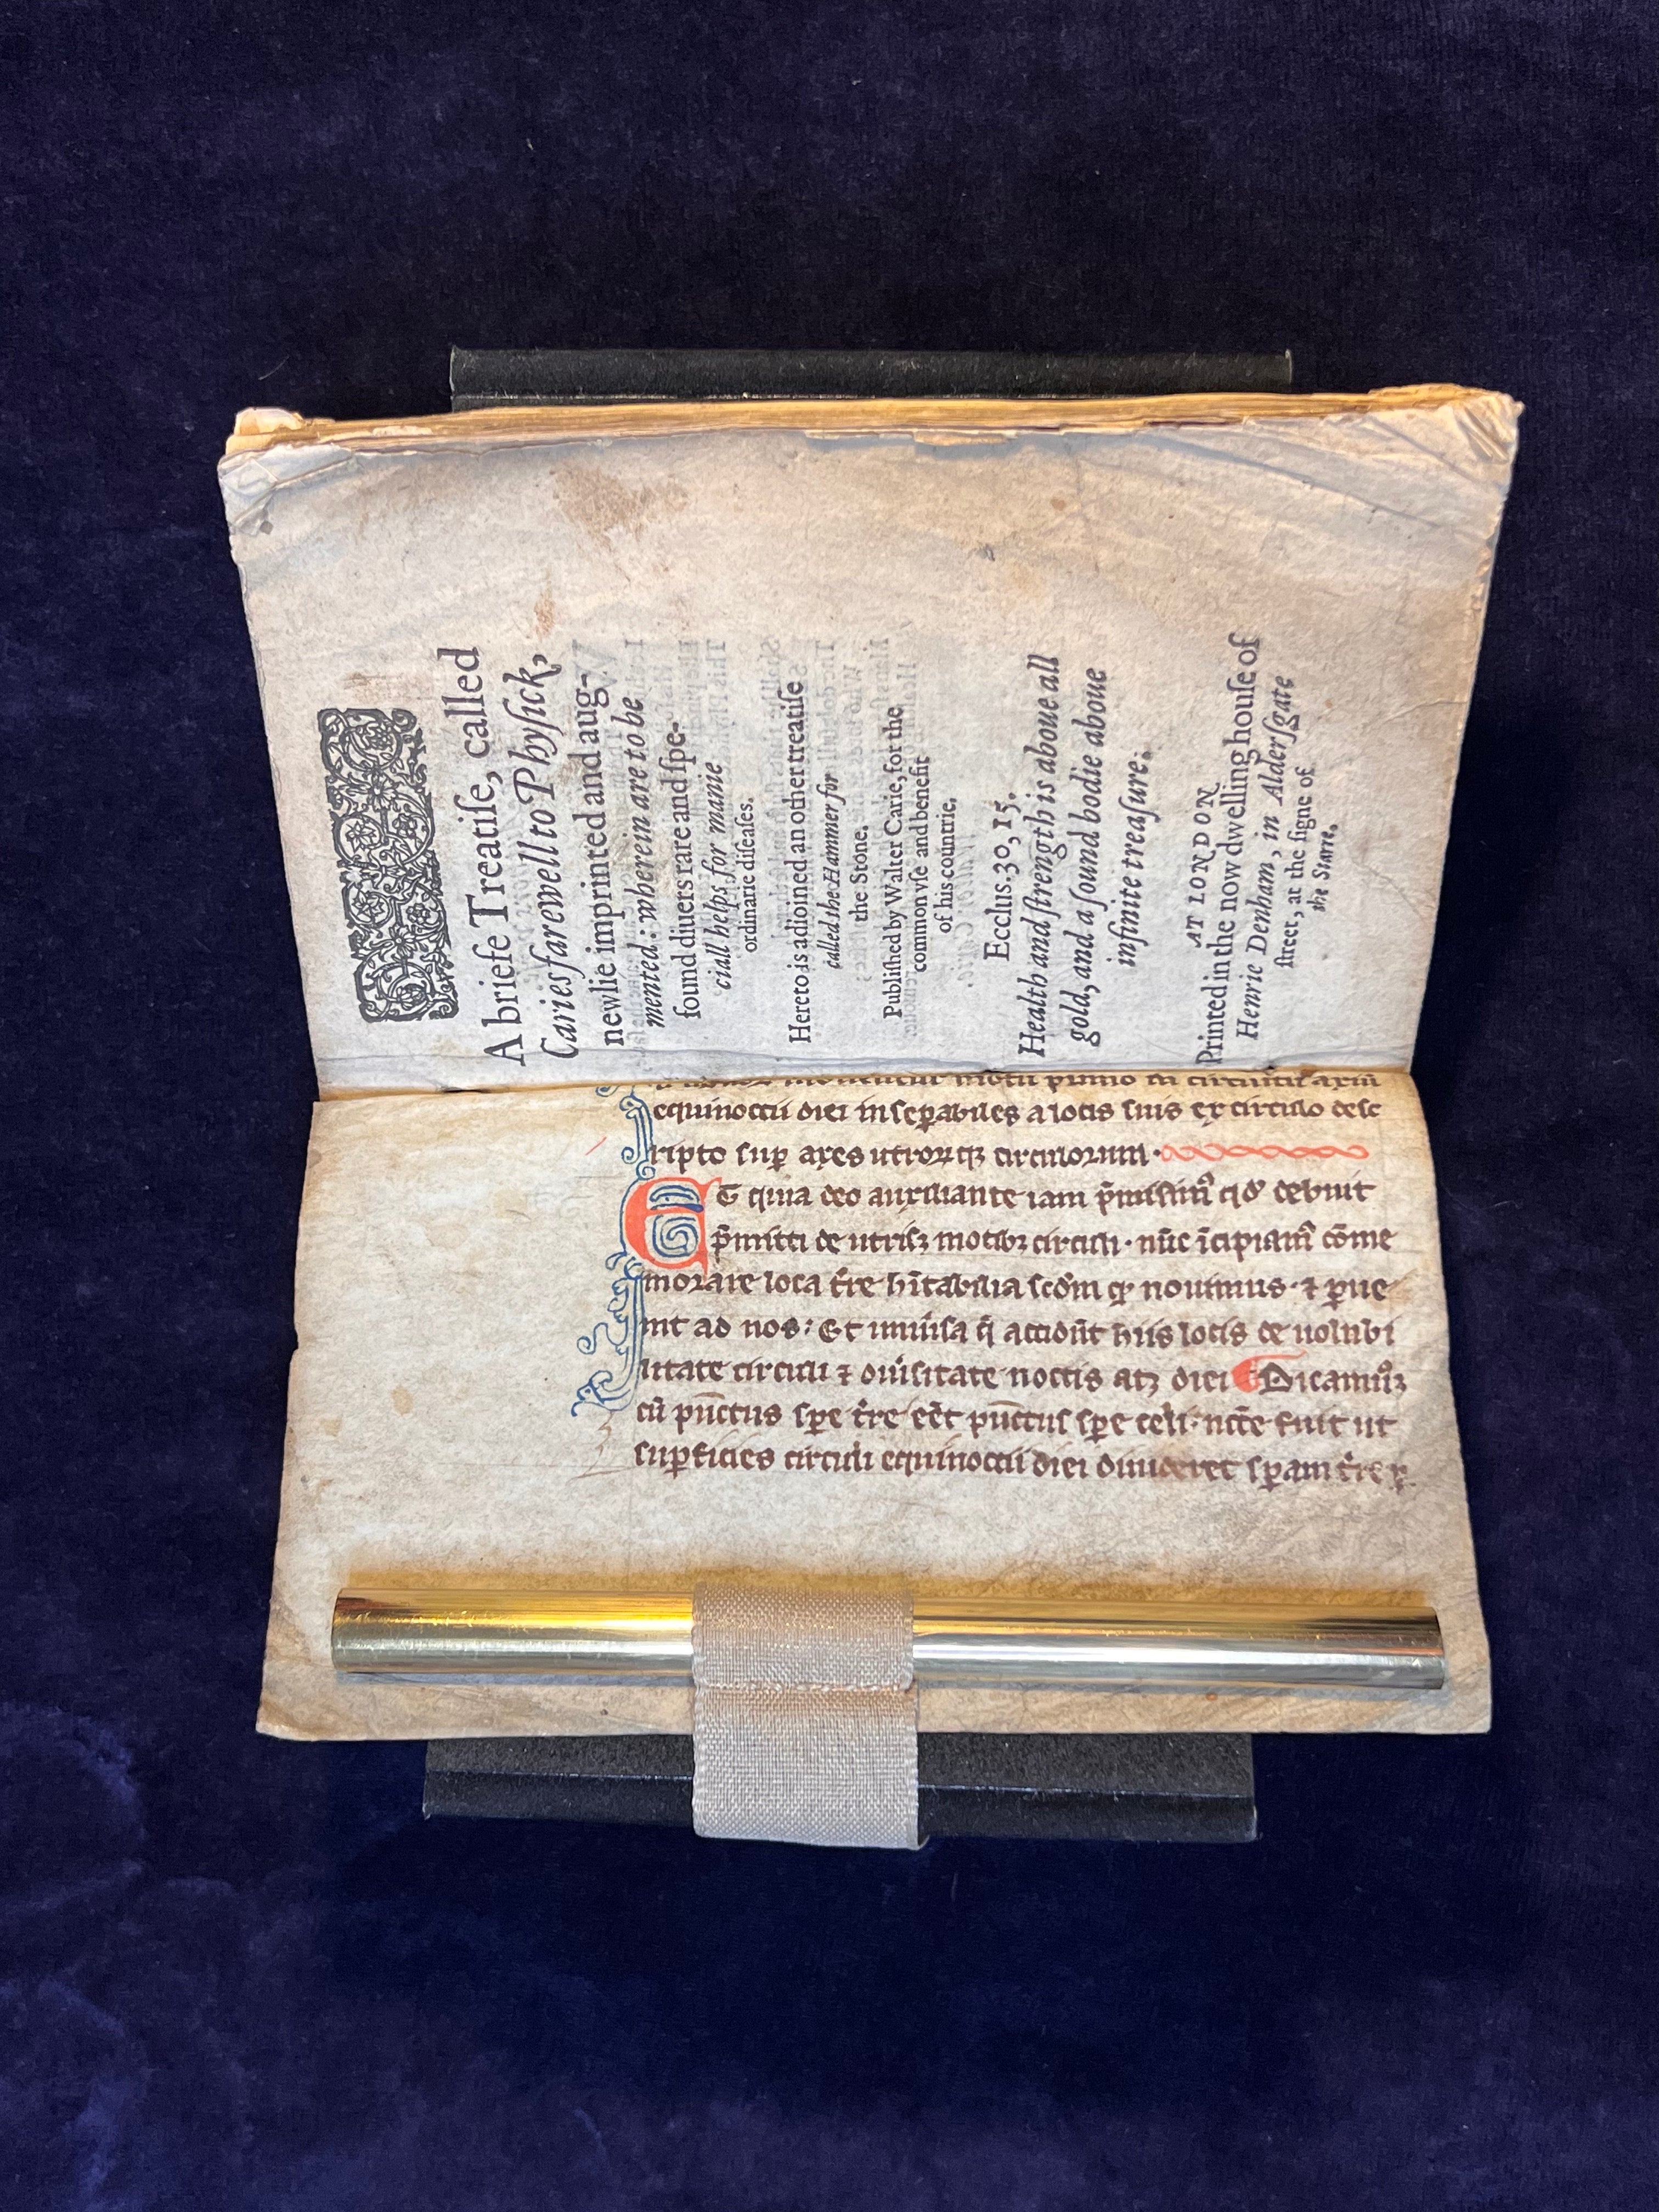 A briefe Treatiſe, called
Caries farewell to Phyſick,
newlie imprinted and aug-
mented: wherein are to be
found diuers rare and ſpe-
ciall helps for manie
ordinarie diſeaſes.
Hereto is adioined an other treatiſe
called the Hammer for
the Stone.
Publiſhed by Walter Carie, for the
common vſe and benefit
of his countrie.
Ecclus. 30, 15.
Health and ſtrength is aboue all
gold, and a ſound bodie aboue
infinite treaſure.
AT LONDON
Printed in the now dwelling houſe of
Henrie Denham, in Alderſgate
ſtreet, at the ſigne of
the Starre.
motu primo in circuitu axiū
equinoctii diei inseꝑabiles a locis suis ex circulo desc
ripto suꝑ axes utrorūqꝫ circulorum·
Et quia deo auxiliante iam p̄misim᷒ qd̛ debuit
p̄mitti de utrisqꝫ motibꝫ circuli· nūc īcipiam᷒ cōme
morare loca t̄re hītabilia scd̛m qꝫ nouimus· ⁊ ꝑue
nit ad nos: Et uniūsa q̄ accidūt hiis locis de uolubi
litate circuli ⁊ diūsitate noctis atqꝫ diei Dicam᷒
cū pūctus sꝑe t̄re eēt pūctus sꝑe celi· nc̄c̄e fuit ut
suꝑficies circuli equinoctii diei diuideret sꝑam t̄re